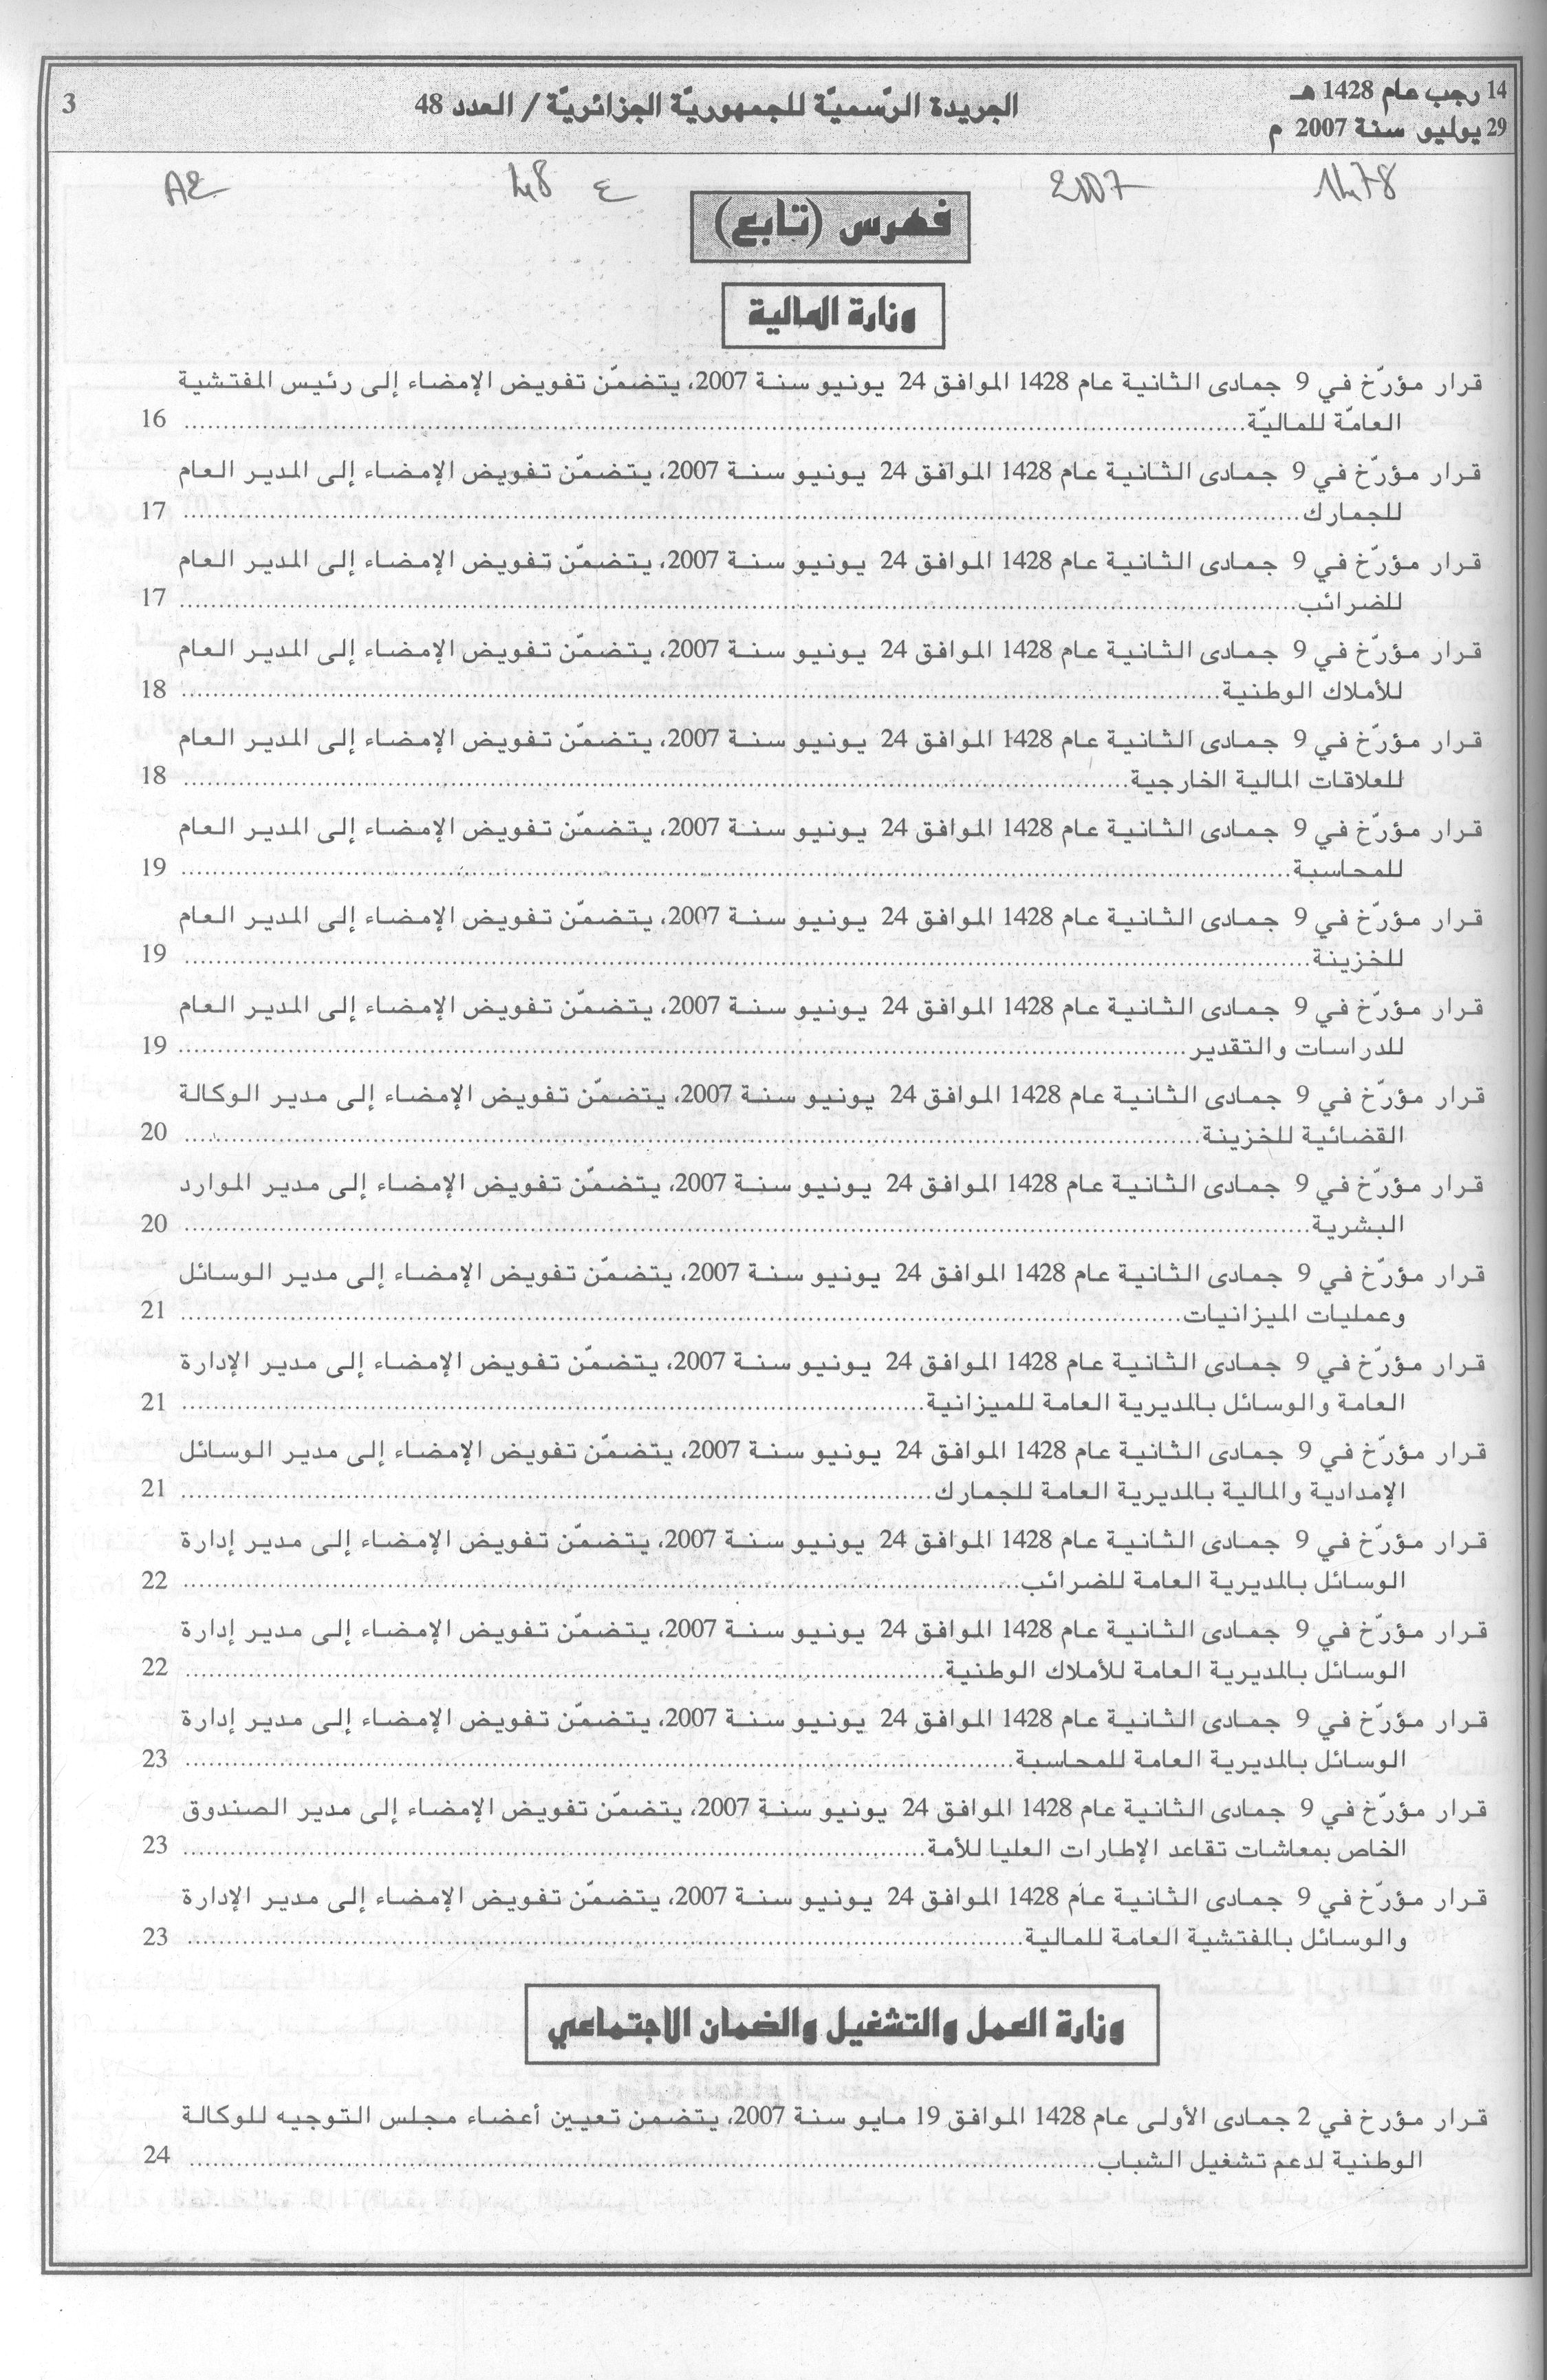 14 رجب عام 1428 هـ
29 يوليو سنة 2007 م
الجريدة الرّسميّة للجمهوريّة الجزائريّة / العدد 48
3
2007
48
ع
A2
فهرس (تابع)
وزارة المالية
قرار مؤرّخ في 9 جمادى الثانية عام 1428 الموافق 24 يونيو سنة 2007، يتضمّن تفويض الإمضاء إلى رئيس المفتشية
العامّة للماليّة........ 16
قرار مؤرّخ في 9 جمادى الثانية عام 1428 الموافق 24 يونيو سنة 2007، يتضمّن تفويض الإمضاء إلى المدير العام
للجمارك........ 17
قرار مؤرّخ في 9 جمادى الثانية عام 1428 الموافق 24 يونيو سنة 2007، يتضمّن تفويض الإمضاء إلى المدير العام
للضرائب........ 17
قرار مؤرّخ في 9 جمادى الثانية عام 1428 الموافق 24 يونيو سنة 2007، يتضمّن تفويض الإمضاء إلى المدير العام
للأملاك الوطنية........ 18
قرار مؤرّخ في 9 جمادى الثانية عام 1428 الموافق 24 يونيو سنة 2007، يتضمّن تفويض الإمضاء إلى المدير العام
للعلاقات المالية الخارجية........ 18
قرار مؤرّخ في 9 جمادى الثانية عام 1428 الموافق 24 يونيو سنة 2007، يتضمّن تفويض الإمضاء إلى المدير العام
للمحاسبة........ 19
قرار مؤرّخ في 9 جمادى الثانية عام 1428 الموافق 24 يونيو سنة 2007، يتضمّن تفويض الإمضاء إلى المدير العام
للخزينة........ 19
قرار مؤرّخ في 9 جمادى الثانية عام 1428 الموافق 24 يونيو سنة 2007، يتضمّن تفويض الإمضاء إلى المدير العام
للدراسات والتقدير........ 19
قرار مؤرّخ في 9 جمادى الثانية عام 1428 الموافق 24 يونيو سنة 2007، يتضمّن تفويض الإمضاء إلى مدير الوكالة
القضائية للخزينة........ 20
قرار مؤرّخ في 9 جمادى الثانية عام 1428 الموافق 24 يونيو سنة 2007، يتضمّن تفويض الإمضاء إلى مدير الموارد
البشرية........ 20
قرار مؤرّخ في 9 جمادى الثانية عام 1428 الموافق 24 يونيو سنة 2007، يتضمّن تفويض الإمضاء إلى مدير الوسائل
وعمليات الميزانيات........ 21
قرار مؤرّخ في 9 جمادى الثانية عام 1428 الموافق 24 يونيو سنة 2007، يتضمّن تفويض الإمضاء إلى مدير الإدارة
العامة والوسائل بالمديرية العامة للميزانية........ 21
قرار مؤرّخ في 9 جمادى الثانية عام 1428 الموافق 24 يونيو سنة 2007، يتضمّن تفويض الإمضاء إلى مدير الوسائل
الإمدادية والمالية بالمديرية العامة للجمارك........ 21
قرار مؤرّخ في 9 جمادى الثانية عام 1428 الموافق 24 يونيو سنة 2007، يتضمّن تفويض الإمضاء إلى مدير إدارة
الوسائل بالمديرية العامة للضرائب........ 22
قرار مؤرّخ في 9 جمادى الثانية عام 1428 الموافق 24 يونيو سنة 2007، يتضمّن تفويض الإمضاء إلى مدير إدارة
الوسائل بالمديرية العامة للأملاك الوطنية........ 22
قرار مؤرّخ في 9 جمادى الثانية عام 1428 الموافق 24 يونيو سنة 2007، يتضمّن تفويض الإمضاء إلى مدير إدارة
الوسائل بالمديرية العامة للمحاسبة........ 23
قرار مؤرّخ في 9 جمادى الثانية عام 1428 الموافق 24 يونيو سنة 2007، يتضمّن تفويض الإمضاء إلى مدير الصندوق
الخاص بمعاشات تقاعد الإطارات العليا للأمة........ 23
قرار مؤرّخ في 9 جمادى الثانية عام 1428 الموافق 24 يونيو سنة 2007، يتضمّن تفويض الإمضاء إلى مدير الإدارة
والوسائل بالمفتشية العامة للمالية........ 23
وزارة العمل والتشغيل والضمان الاجتماعي
قرار مؤرخ في 2 جمادى الأولى عام 1428 الموافق 19 مايو سنة 2007، يتضمن تعيين أعضاء مجلس التوجيه للوكالة
الوطنية لدعم تشغيل الشباب........ 24